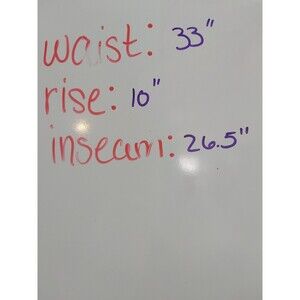 waist: 33"
rise: 10"
inseam: 26.5"